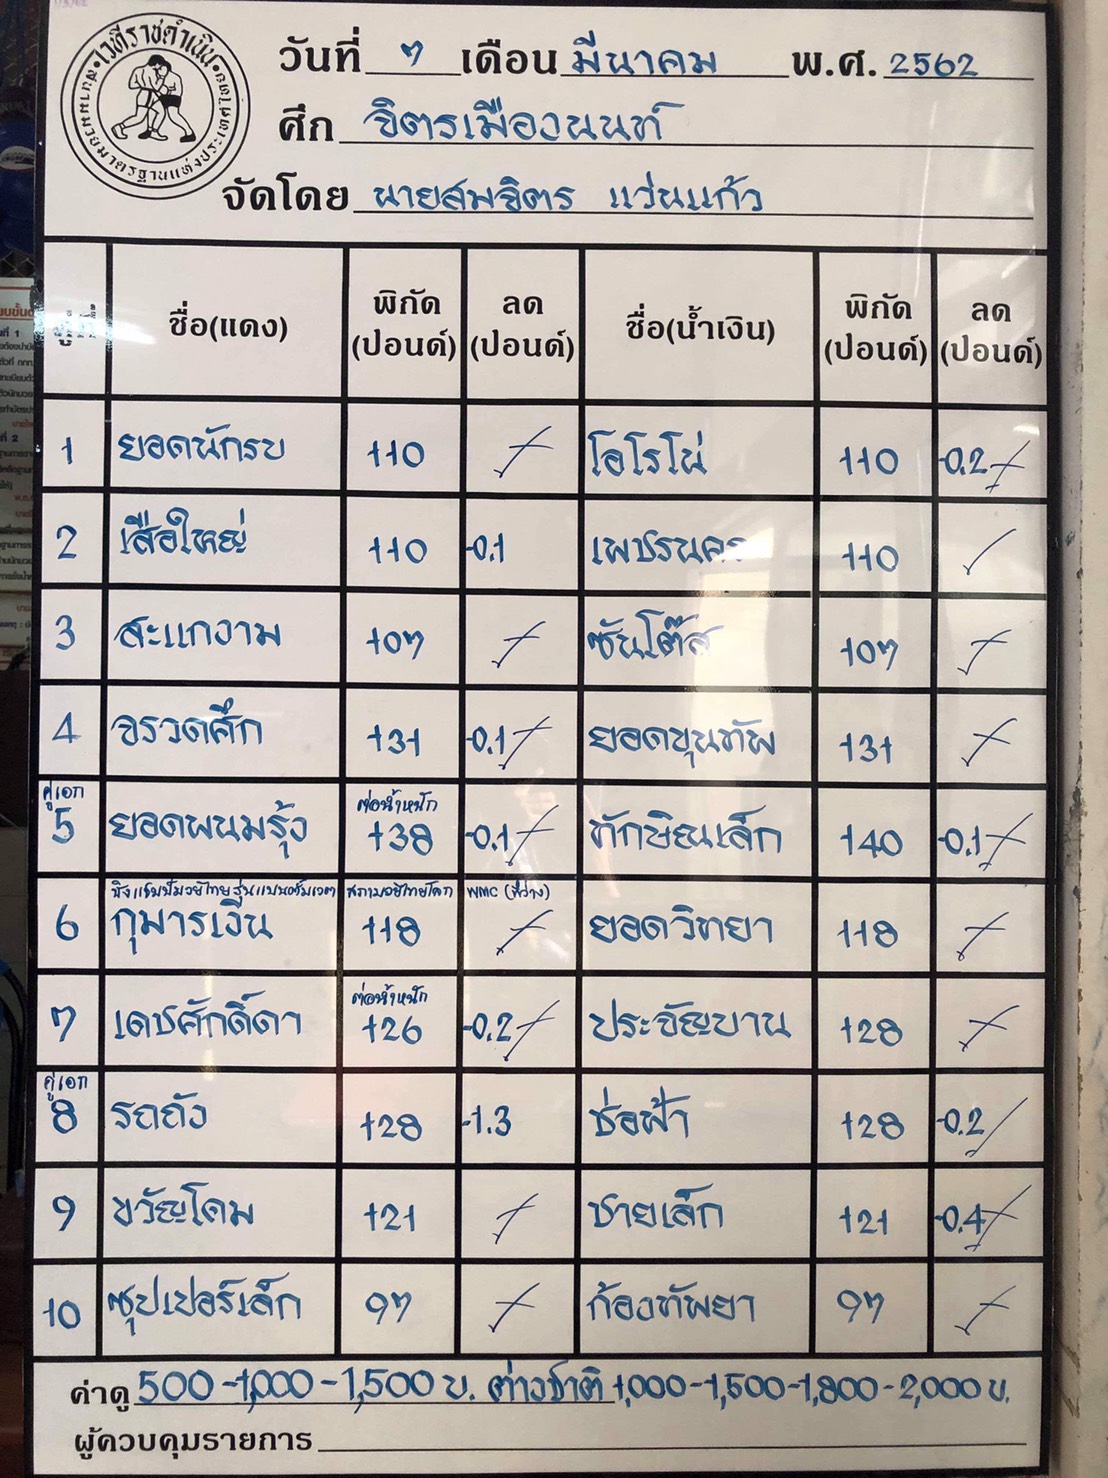 เวทีราชดำเนิน
สนามมวยมาตรฐานแห่งประเทศไทย
วันที่ 7 เดือน มีนาคม พ.ศ. 2562
ศึก จิตรเมืองนนท์
จัดโดย นายสมจิตร แว่นแก้ว
คู่ที่ ชื่อ(แดง) พิกัด (ปอนด์) ลด (ปอนด์) ชื่อ(น้ำเงิน) พิกัด (ปอนด์) ลด (ปอนด์)
1 ยอดนักรบ 110 โอโรโน่ 110 -0.2
2 เสือใหญ่ 110 -0.1 เพชรนคร 110
3 สะแกงาม 107 ซันโต๊ส 107
4 จรวดศึก 131 -0.1 ยอดขุนทัพ 131
คู่เอก ต่อน้ำหนัก
5 ยอดพนมรุ้ง 138 -0.1 ทักษิณเล็ก 140 -0.1
ชิงแชมป์มวยไทยรุ่นแบนตั้มเวต สภามวยไทยโลก WMC (ที่ว่าง)
6 กุมารเงิน 118 ยอดวิทยา 118
ต่อน้ำหนัก
7 เดชศักดิ์ดา 126 -0.2 ประจัญบาน 128
คู่เอก
8 รถถัง 128 -1.3 ช่อฟ้า 128 -0.2
9 ขวัญโดม 121 ชายเล็ก 121 -0.4
10 ซุปเปอร์เล็ก 97 ก้องทัพยา 97
ค่าดู 500-1,000-1,500 บ. ต่างชาติ 1,000-1,500-1,800-2,000 บ.
ผู้ควบคุมรายการ